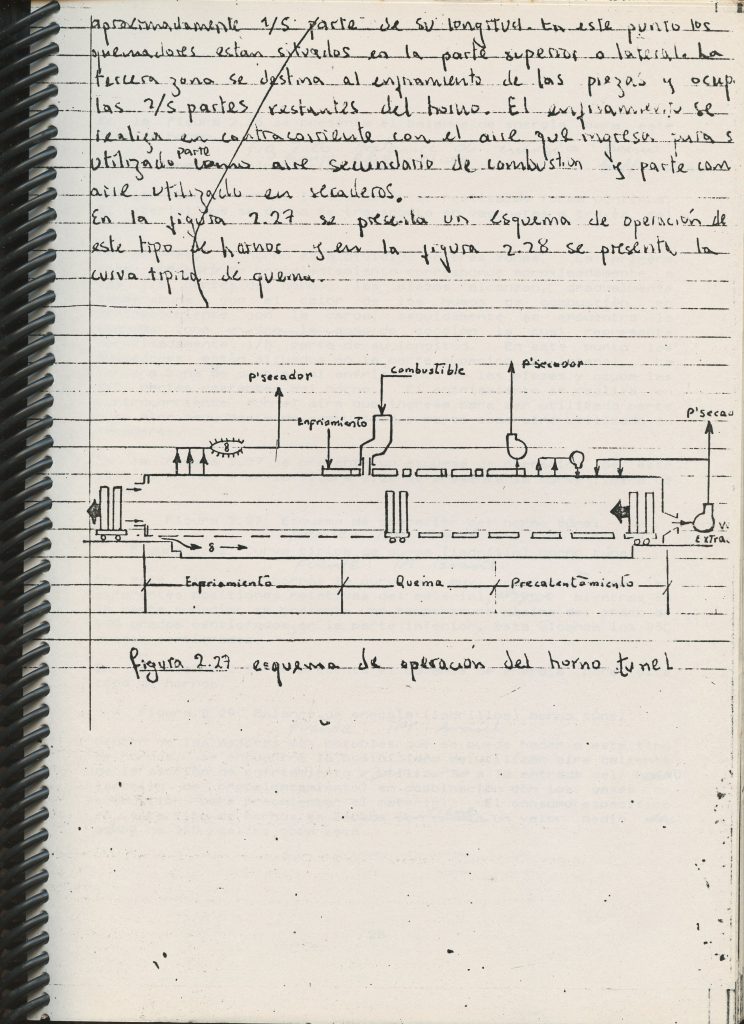 aproximadamente 1/5 parte de su longitud. En este punto los
quemadores estan situados en la parte superior o lateral. La
tercera zona se destina al enfriamiento de las piezas y ocup
las 2/5 partes restantes del horno. El enfriamiento se
realiza en contracorriente con el aire que ingresa para s
utilizado parte como aire secundario de combustion y parte com
aire utilizado en secaderos.
En la figura 2.27 se presenta un esquema de operación de
este tipo de hornos y en la figura 2.28 se presenta la
curva tipica de quema.
P'secador
Combustible
P'secador
Enfriamiento
P'secad
8
V.
Extra.
8
Enfriamiento
Quema
Precalentamiento
figura 2.27 esquema de operación del horno tunel